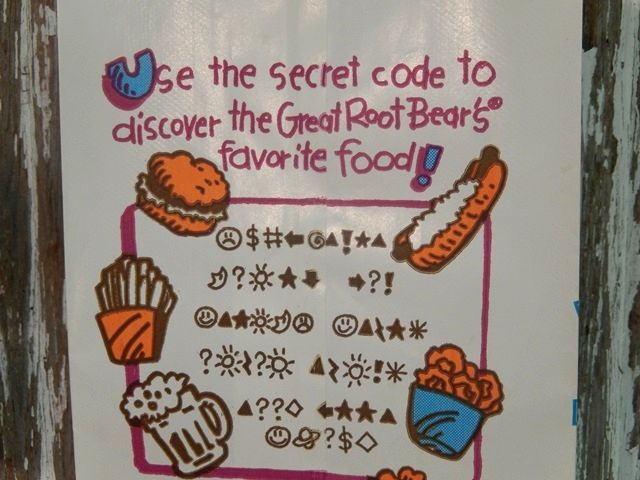 Use the secret code to
discover the Great Root Bear's®
favorite food!